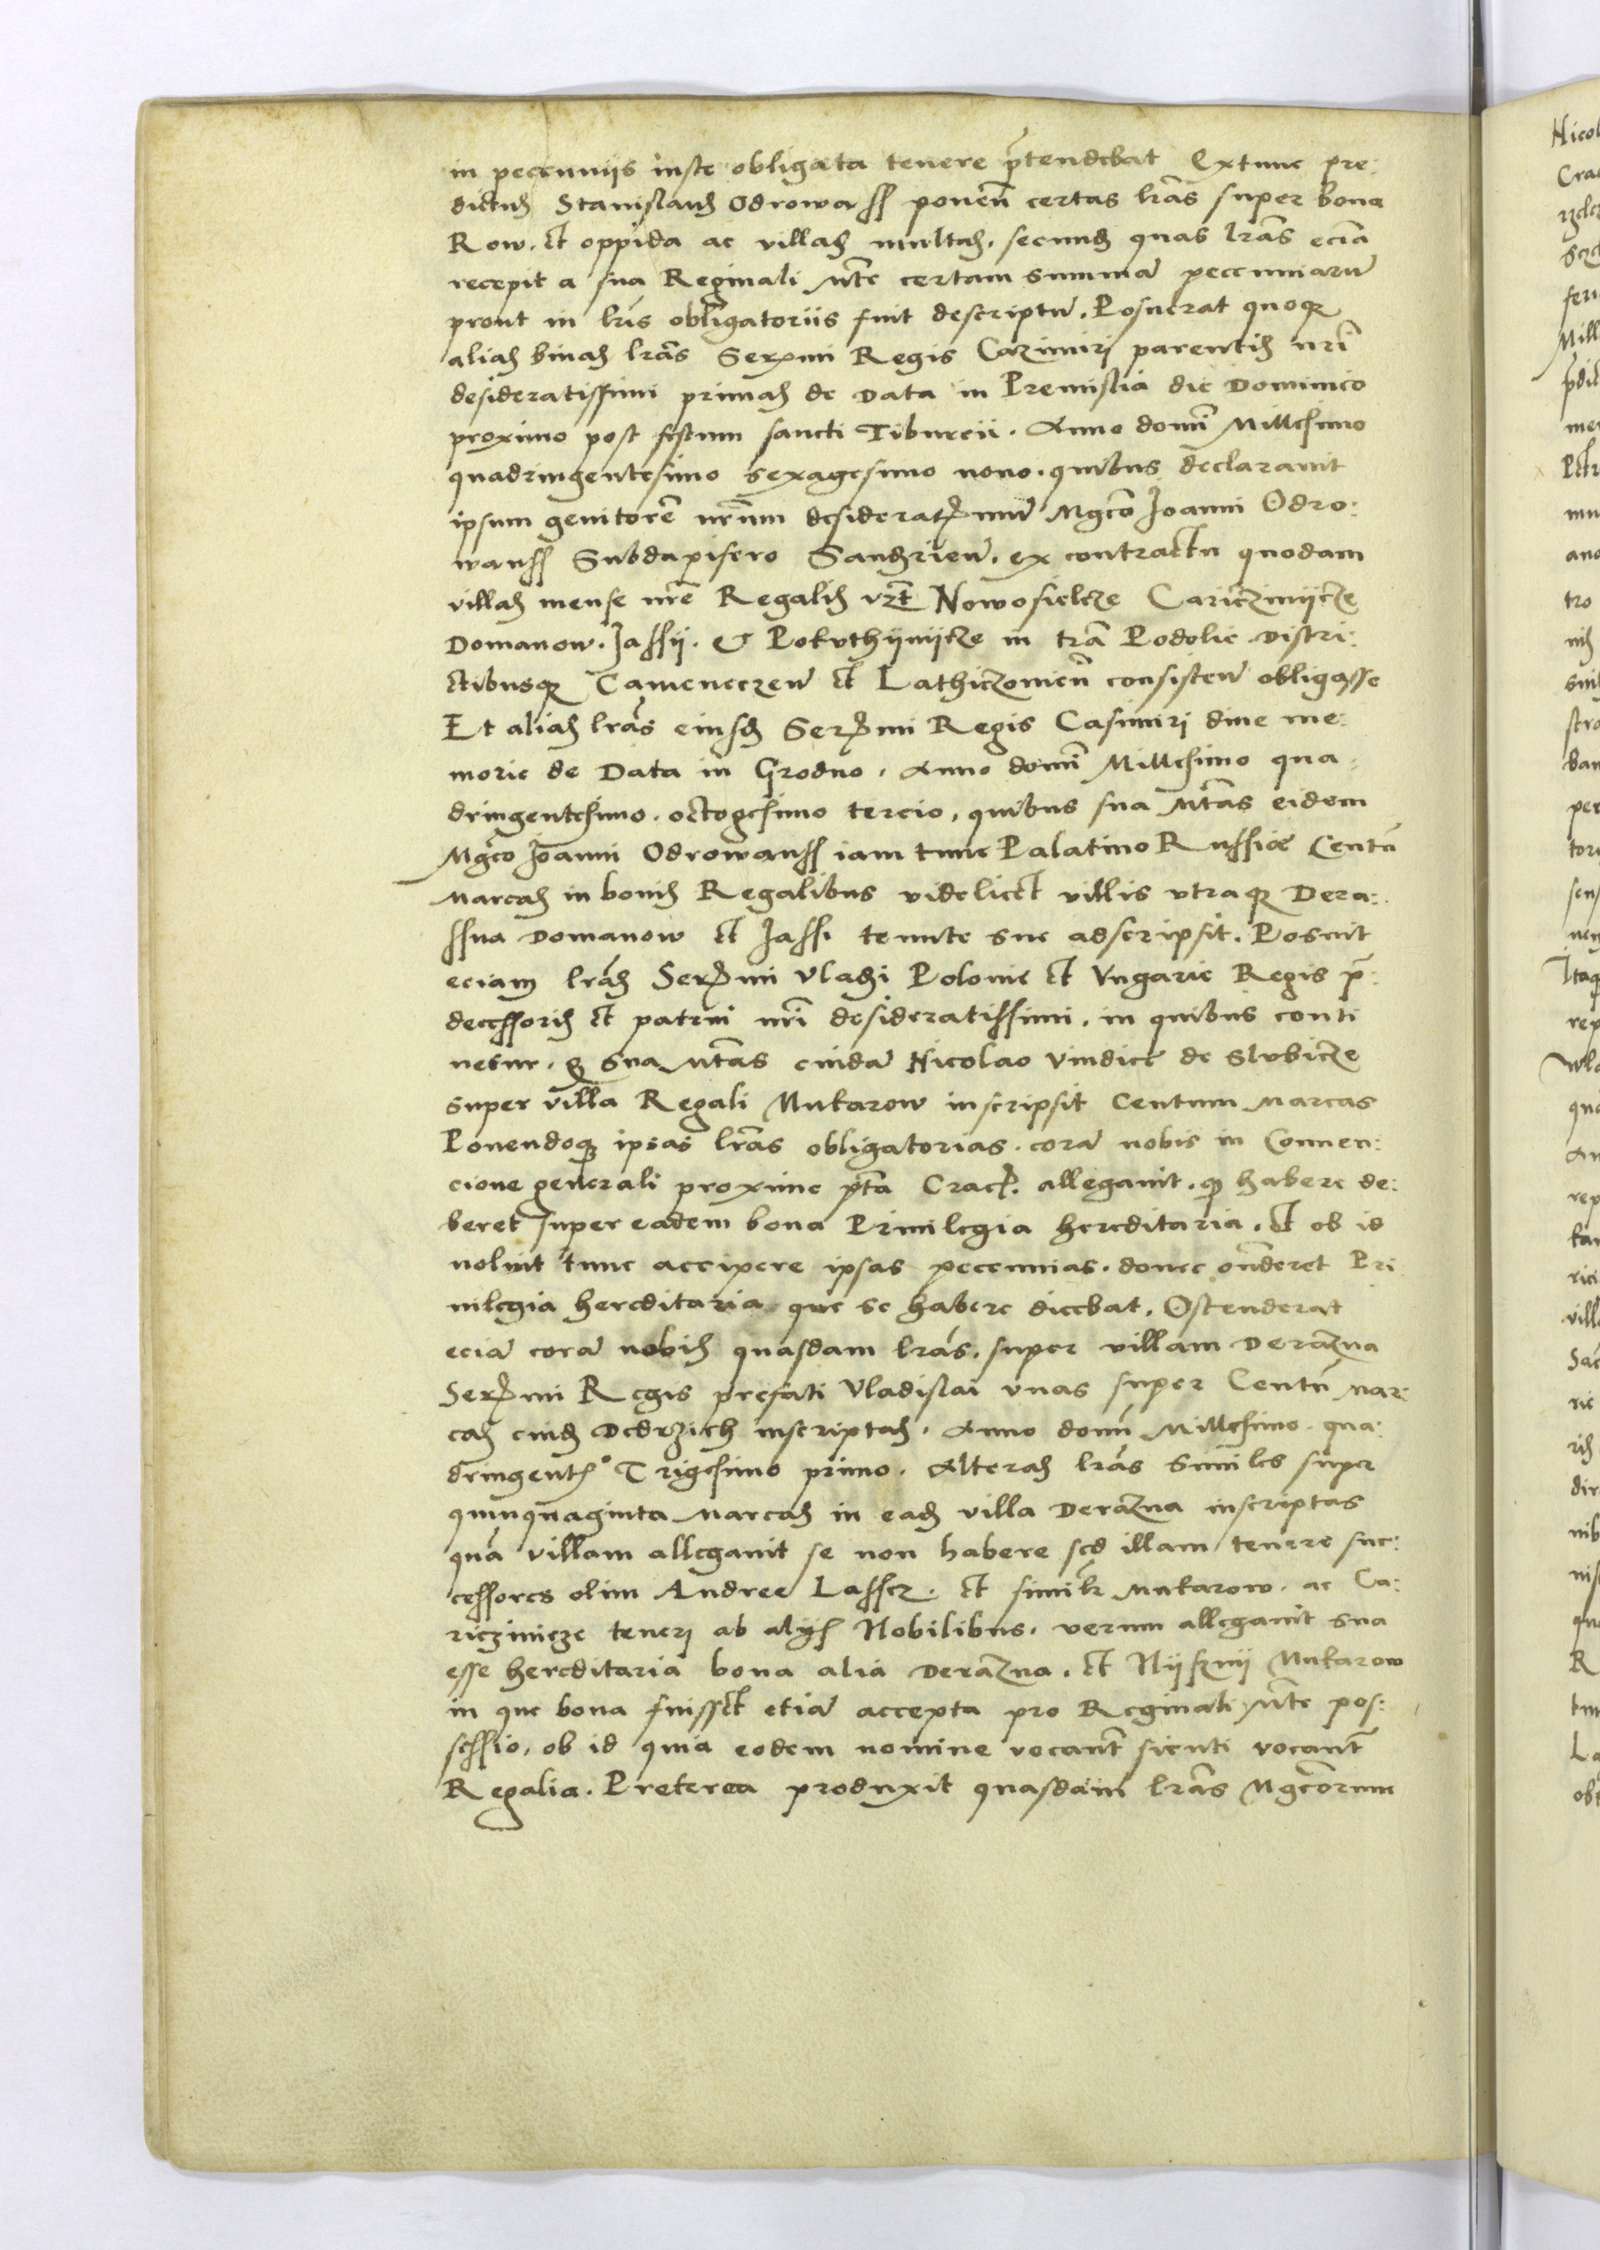 in peccuniis inste obligata tenere p̃tendebat Extunc pre:
dictus Stanislaus Odrowassz ponen̄ certas lr̃as super bona
Row. et oppida ac villas multas. secund quas lr̃as eciã
recepit a sua Reginali Mte certam summã peccuniarũ
prout in lr̃is obligatoriis fuit descriptũ. Posuerat quoqꝫ
alias binas lr̃as Serẽmi Regis Cazimiri parentis nr̃i
desideratissimi primas de Data in Premislia die Dominico
proximo post festum sancti Tiburcii. Anno domĩ Millesimo
quadringentesimo sexagesimo nono. quibus declarauit
ipsum genitorẽ nr̃um desideratᷤmũ Mgco Joanni Odro:
wanssz Subdapifero Sandzirien̄. ex contractu quodam
villas mense nr̃e Regalis vzt Nowosielcze Cariczinijcze
Domanow. Jassij. & Pokuthijnijcze in tr̃a Podolie Distri:
ctibusqꝫ Cameneczen̄ et Lathiczouien̄ consisten̄ obligasse
Et alias lr̃as eiusd Serẽmi Regis Casimiri diue me:
morie de Data in Grodno. Anno domĩ Millesimo qua:
dringentesimo. octogesimo tercio, quibus sua Mtas eidem
Mgco Joanni Odrowanssz iam tunc Palatino Russie Centũ
Marcas in bonis Regalibus videlicet villis vtraqꝫ Dera:
ssna Domanow et Jassi tenute sue adscripsit. Posuit
eciam lr̃as Serẽmi Vladi Polonie et Vngarie Regis p̃:
decessoris et patrui nr̃i desideratissimi. in quibus conti
netur. qꝫ sua Mtas cuidã Nicolao Vindice de Slubicze
super villa Regali Mukarow inscripsit Centum Marcas
Ponendoqꝫ ipsas lr̃as obligatorias. corã nobis in Conuen:
cione generali proxime pt̃a Crac. allegauit. qꝫ habere de:
beret super eadem bona Priuilegia hereditaria. et ob id
noluit tunc accipere ipsas peccunias. donec on̄deret Pri
uilegia hereditaria que se habere dicebat. Ostenderat
eciã corã nobis quasdam lr̃as. super villam Derazna
Serẽmi Regis prefati Vladislai vnas super Centũ Mar:
cas cuid Dedrzich inscriptas. Anno domĩ Millesimo. qua:
dringentᷤº Trigesimo primo. Alteras lr̃as similes super
quinquaginta Marcas in ead villa Derazna inscriptas
quã villam allegauit se non habere sed illam tenere suc:
cessores olim Andree Lasscz. et similr Mukarow. ac Ca:
riczinicze teneri ab alijs Nobilibus. verum allegauit sua
esse hereditaria bona alia Derazna. et Nijsznij Mukarow
in que bona fuisset etiã accepta pro Reginali Mte pos:
sessio, ob id quia eodem nomine vocant̃ sicuti vocant̃
Regalia. Preterea produxit quasdam lr̃as Mgcorum